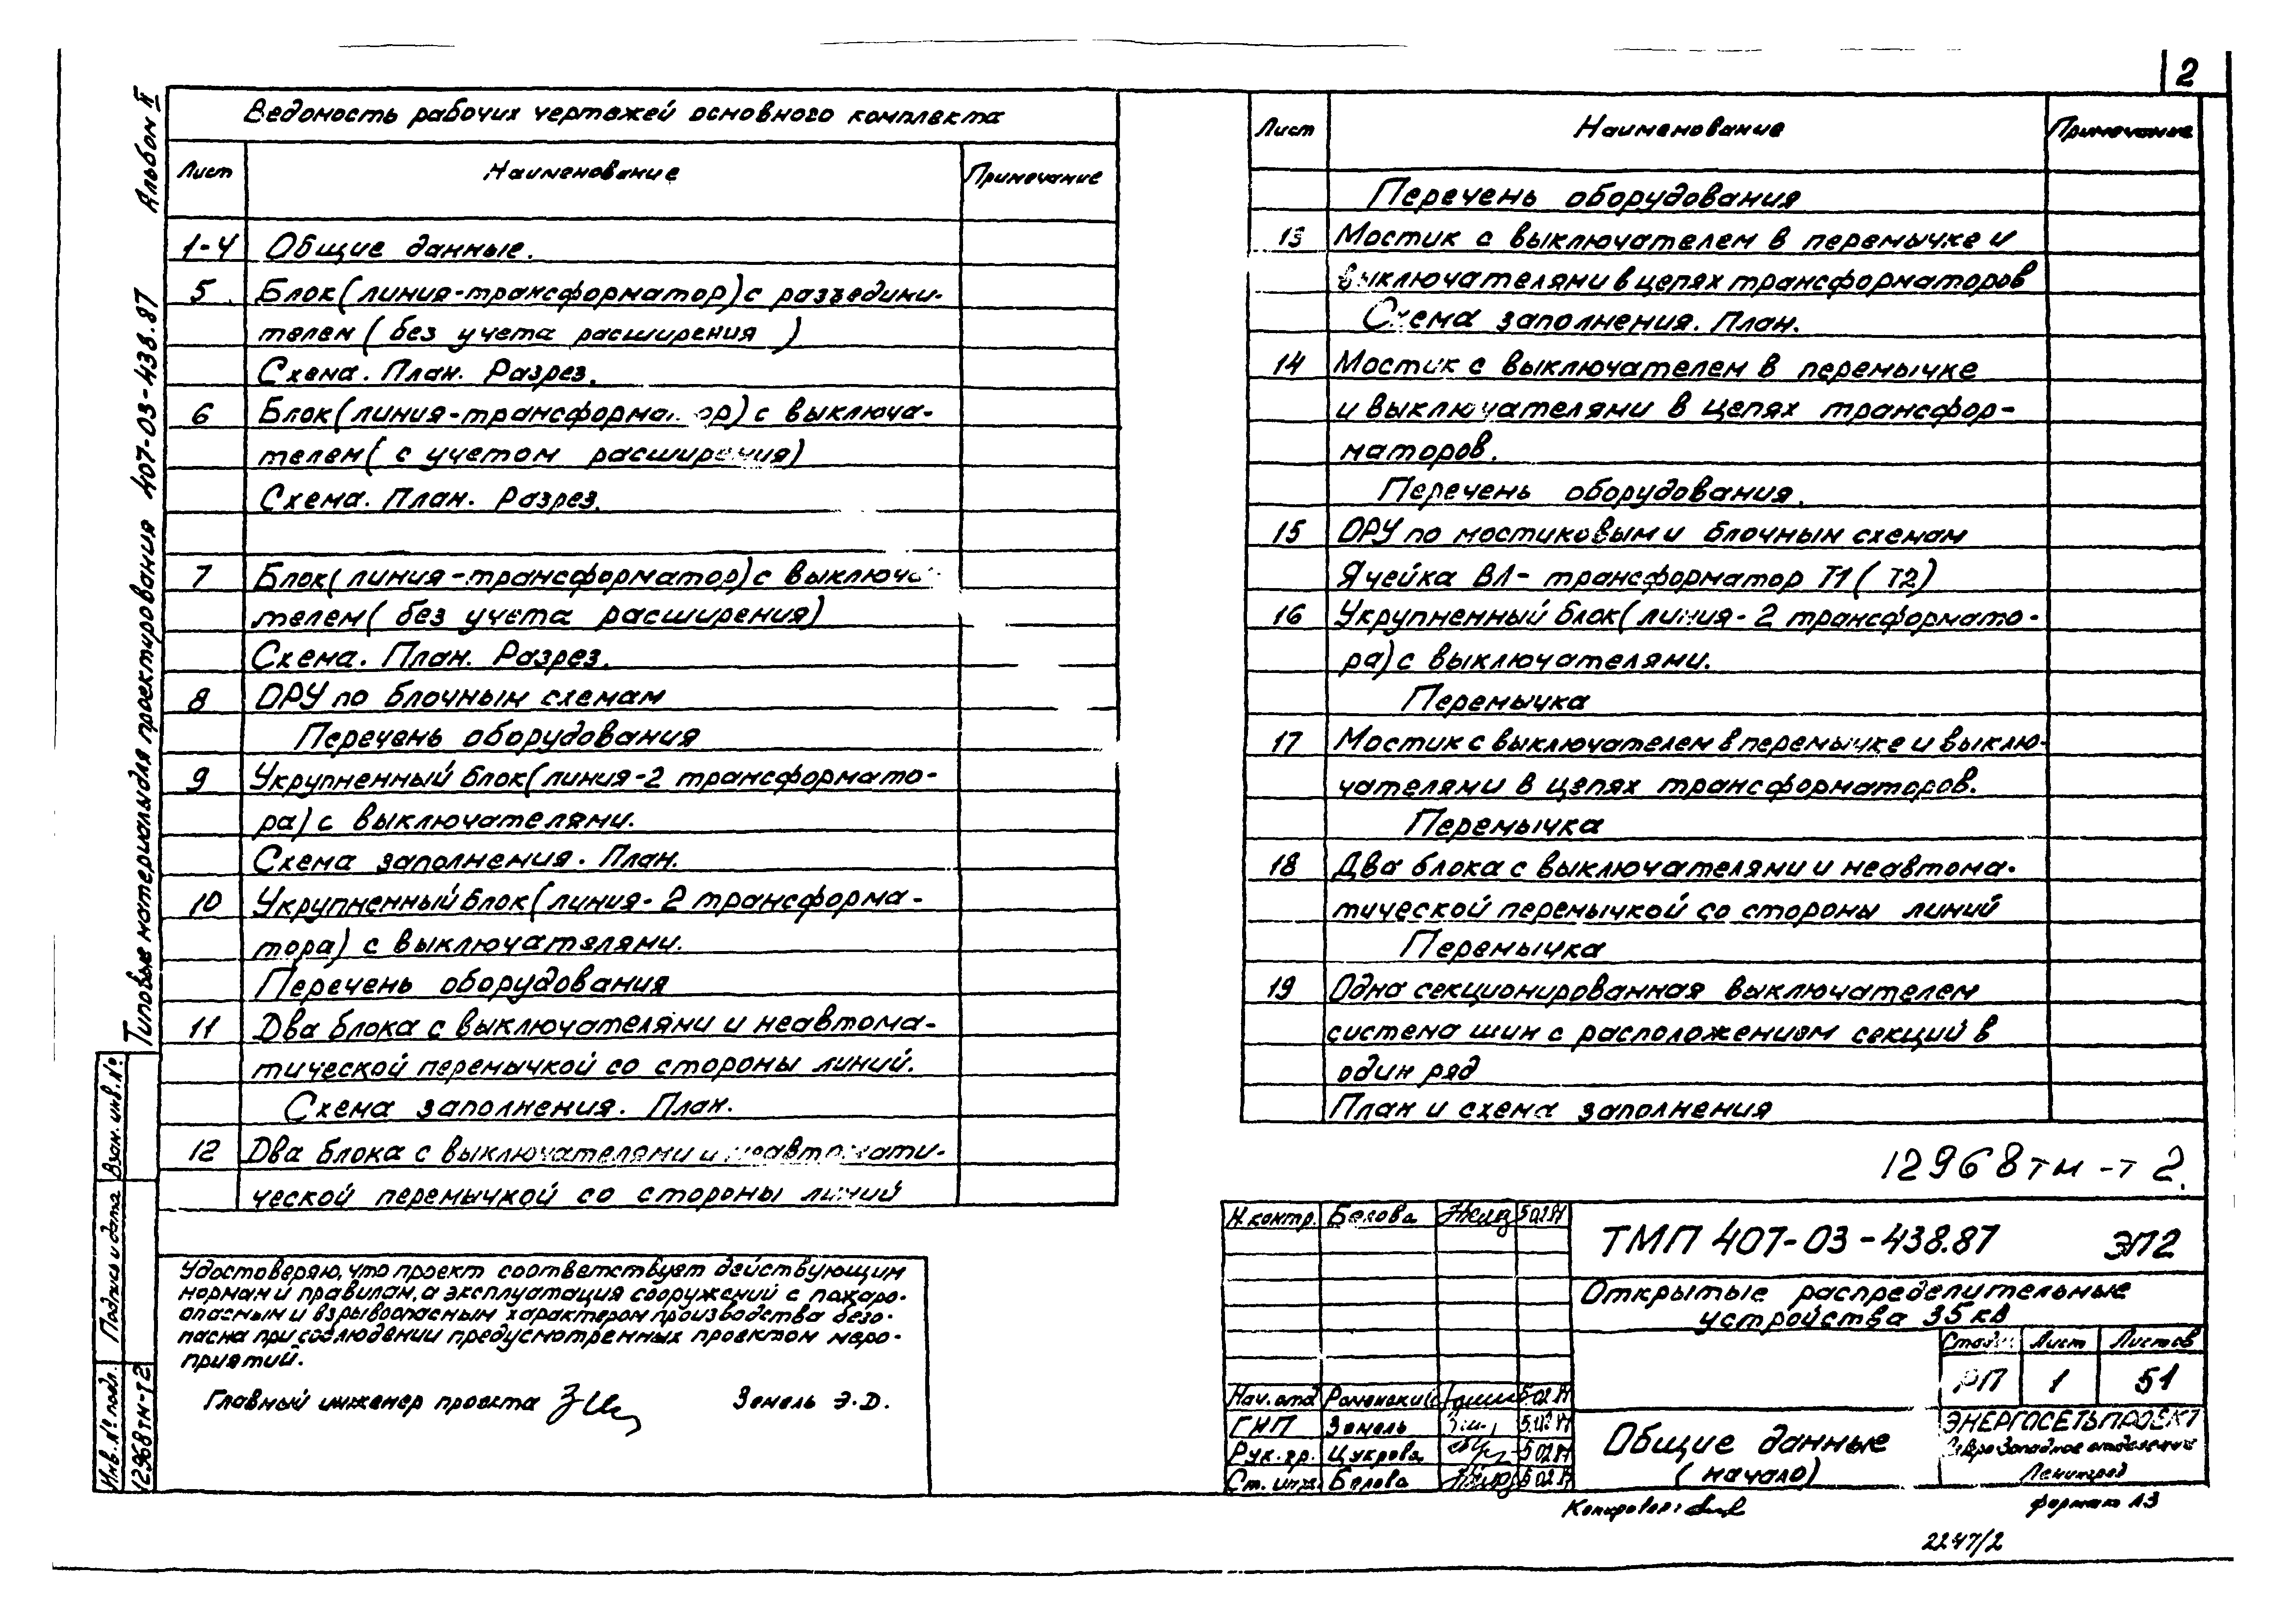 2
Альбом II
Типовые материалы для проектирования 407-03-438.87
Ведомость рабочих чертежей основного комплекта
Лист Наименование Примечание
1-4 Общие данные.
5 Блок(линия-трансформатор) с разъедини-
телем (без учета расширения)
Схема. План. Разрез.
6 Блок(линия-трансформатор) с выключа-
телем( с учетом расширения)
Схема. План. Разрез.
7 Блок(линия-трансформатор) с выключа-
телем( без учета расширения)
Схема. План. Разрез.
8 ОРУ по блочным схемам
Перечень оборудования
9 Укрупненный блок(линия-2 трансформато-
ра) с выключателями.
Схема заполнения. План.
10 Укрупненный блок(линия-2 трансформа-
тора) с выключателями.
Перечень оборудования
11 Два блока с выключателями и неавтома-
тической перемычкой со стороны линий.
Схема заполнения. План.
12 Два блока с выключателями и неавтомати-
ческой перемычкой со стороны линий
Лист Наименование Примечание
Перечень оборудования
13 Мостик с выключателем в перемычке и
выключателями в цепях трансформаторов
Схема заполнения. План.
14 Мостик с выключателем в перемычке
и выключателями в цепях трансфор-
маторов.
Перечень оборудования.
15 ОРУ по мостиковым и блочным схемам
Ячейка ВЛ- трансформатор Т1 (Т2)
16 Укрупненный блок(линия-2 трансформато-
ра) с выключателями.
Перемычка
17 Мостик с выключателем в перемычке и выклю-
чателями в цепях трансформаторов.
Перемычка
18 Два блока с выключателями и неавтома-
тической перемычкой со стороны линий
Перемычка
19 Одна секционированная выключателем
система шин с расположением секций в
один ряд
План и схема заполнения
12968тм-т2.
Удостоверяю, что проект соответствует действующим
нормам и правилам, а эксплуатация сооружений с пожаро-
опасным и взрывоопасным характером производства безо-
пасна при соблюдении предусмотренных проектом меро-
приятий.
Главный инженер проекта Земель Э.Д.
Взам. инв. №
Подпись и дата
Инв. № подл.
12968тм-т2
Н.контр. Белова 5.02.87
ТМП 407-03-438.87 ЭП2
Открытые распределительные
устройства 35 кВ
Стадия Лист Листов
РП 1 51
Нач.отд Роменский 5.02.87
ГИП Земель 5.02.87
Рук.гр. Цукрова 5.02.87
Ст. инж. Белова 5.02.87
Общие данные
(начало)
ЭНЕРГОСЕТЬПРОЕКТ
Северо-Западное отделение
Ленинград
Копировал:
формат А3
2247/2